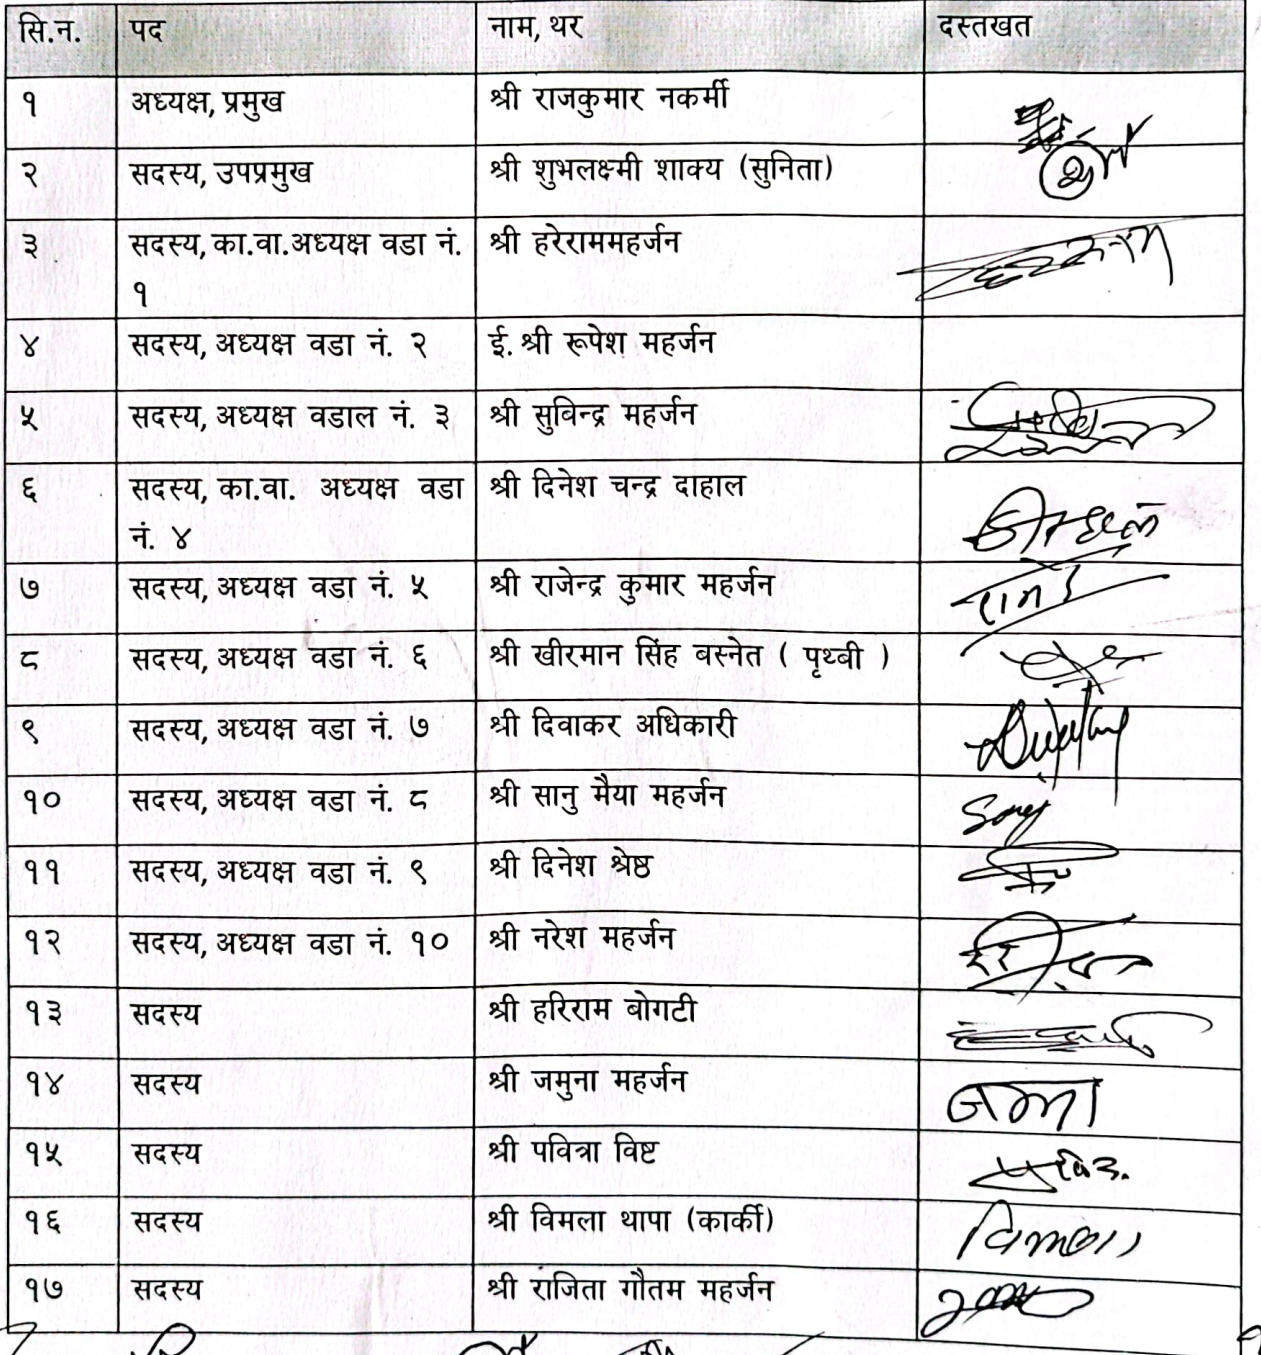 सि.न. पद नाम, थर दस्तखत
१ अध्यक्ष, प्रमुख श्री राजकुमार नकर्मी
२ सदस्य, उपप्रमुख श्री शुभलक्ष्मी शाक्य (सुनिता)
३ सदस्य, का.वा.अध्यक्ष वडा नं. श्री हरेराममहर्जन
१
४ सदस्य, अध्यक्ष वडा नं. २ ई. श्री रूपेश महर्जन
५ सदस्य, अध्यक्ष वडाल नं. ३ श्री सुबिन्द्र महर्जन
६ सदस्य, का.वा. अध्यक्ष वडा श्री दिनेश चन्द्र दाहाल
नं. ४
७ सदस्य, अध्यक्ष वडा नं. ५ श्री राजेन्द्र कुमार महर्जन
८ सदस्य, अध्यक्ष वडा नं. ६ श्री खीरमान सिंह बस्नेत ( पृथ्बी )
९ सदस्य, अध्यक्ष वडा नं. ७ श्री दिवाकर अधिकारी
१० सदस्य, अध्यक्ष वडा नं. ८ श्री सानु मैया महर्जन
११ सदस्य, अध्यक्ष वडा नं. ९ श्री दिनेश श्रेष्ठ
१२ सदस्य, अध्यक्ष वडा नं. १० श्री नरेश महर्जन
१३ सदस्य श्री हरिराम बोगटी
१४ सदस्य श्री जमुना महर्जन
१५ सदस्य श्री पवित्रा विष्ट
१६ सदस्य श्री विमला थापा (कार्की)
१७ सदस्य श्री रांजिता गौतम महर्जन